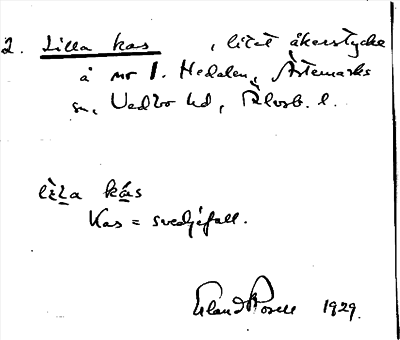 2. Lilla kas , litet åkerstycke
å nr 1. Hedalen, Årtemarks
sn, Vedbo hd, Älvsb. l.
lɩ̀la kás
Kas = svedjefall.
Erland Rosell 1929.